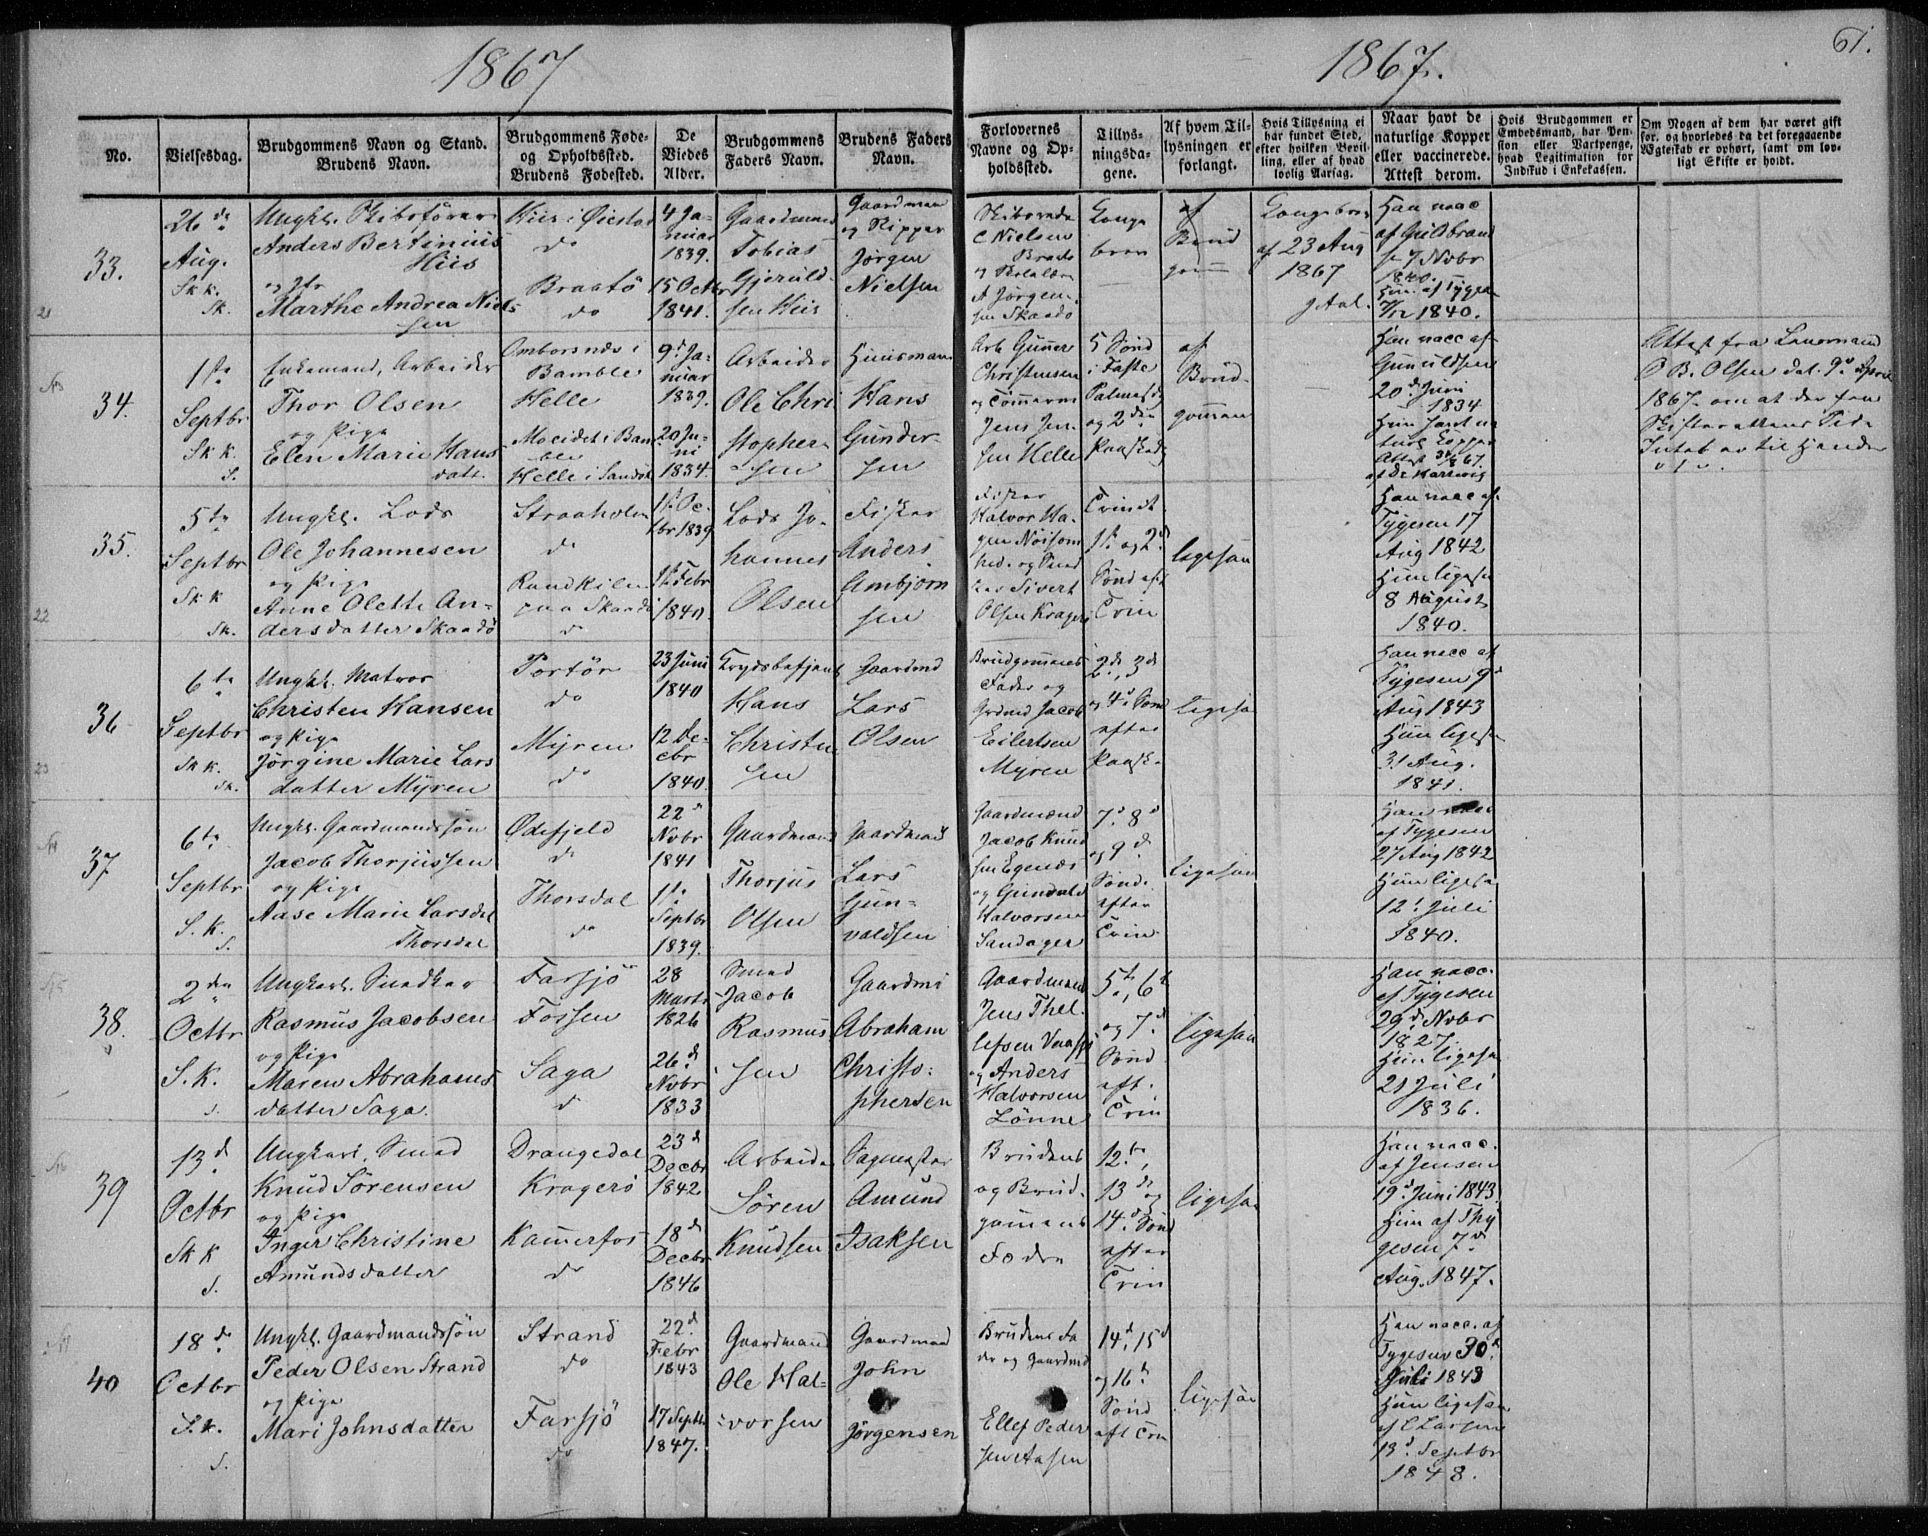 1867
1867.
61.
No.
Vielsesdag.
Brudgommens Navn og Stand.
Brudens Navn.
Brudgommens Føde-
og Opholdssted.
Brudens Fødested.
De
Viedes
Alder.
Brudgommens
Faders Navn.
Brudens Faders
Navn.
Forlovernes
Navne og Op-
holdssted.
Tillys-
ningsda-
gene.
Af hvem Til-
lysningen er
forlangt.
Hvis Tillysning ei
har fundet Sted,
efter hvilken Bevil-
ling, eller af hvad
lovlig Aarsag.
Naar havt de
naturlige Kopper
eller vaccinerede.
Attest derom.
Hvis Brudgommen er
Embedsmand, har Pen-
sion eller Vartpenge,
hvad Legitimation for
Indskud i Enkekassen.
Om Nogen af dem har været gift
før, og hvorledes da det foregaaende
Ægteskab er ophørt, samt om lov-
ligt Skifte er holdt.
33.
26de
Aug.
Sk k.
Sk.
Ungkl. Skibsfører
Anders Bertinius
Hiis
og Jfr
Marthe Andrea Niel-
sen
Hiis i Øiestad
do
Braatö
do
4 Ja-
nuar
1839.
15 Octbr
1841.
Gaardmand
Tobias
Gjeruld-
sen Hiis
Gaardman
og Skipper
Jørgen
Nielsen
Skibsrede
C Nielsen
Braatö
og
A Jørgen-
sen Skaadö
Konge
brev
af
Brud
gom
Kongebrev
af 23 Aug
1867
Han vacc
af Hildbrand
7 Novbr
1840.
Hun af Tygesen
1840.
34.
1ste
Septbr
Sk k.
S.
Enkemand, Arbeider
Thor Olsen
og Pige
Elen Marie Hans
datt.
Omborsnes i
Bamble
Helle
i Bam
ble
Helle i Sandøk
9d Ja-
nuar
1839.
20 Ju-
ni
1834.
Arbeider
Ole Chri
stopher-
sen
Huusman
Hans
Gunder-
sen
Arb Gunner
Christensen
og Tømmerm
Jens Jen-
sen Helle
5 Sönd
i Faste
Palmesd
og 2den
Paaskedg
af
Brud-
gommen
Han vacc af
Gunuldsen
20d Juni
1834
Hun havt na
turl Kopper
Attest 31/8 67.
af Dr Hartwig
Attest fra Lensmand
O B. Olsen dat. 9d April
1867. om at der fra
Skifterettens Side
Intet er til Hinder
35.
5te
Septbr
Sk k
Sk.
Ungkl. Lods
Ole Johannesen
og Pige
Anne Olette An-
dersdatter Skaadö
Straaholm
do
Rundkilen
paa Skaadö
do
1st Oc-
tbr 1839
1st Febr
1840.
Lods Jo-
hannes
Olsen
Fisker
Anders
Ambjørn
sen
Fisker
Halvor Ha-
gen Noisom
hed. og
Sivert
Olsen Kragerö
Trindt.
1ste og 2d
Sönd eft
Trin
ligesaa
Han vacc af
Tygesen 17
Aug 1842
Hun ligesaa
8 August
1840.
36
6te
Septbr
Sk k.
Sk.
Ungkl. Matros
Christen Hansen
og Pige
Jörgine Marie Lars
datter Myren
Portör
do
Myren
do
23 Juni
1840
12 De-
cbr
1840.
Krydsbetjent
Hans
Christen
sen
Gaardmd
Lars
Olsen
Brudgommens
Fader og
Grdmd Jacob
Eilertsen
Myren
2d, 3d
og 4d Sönd
efter
Paaske
ligesaa
Han vacc af
Tygesen 9d
Aug 1843
Hun ligesaa
31 Aug.
1841.
37
6te
Septbr
S. k.
S.
Ungkl. Gaardmandssön
Jacob Thorjussen
og Pige
Aase Marie Larsdat
Thorsdal
Ødefjeld
do
Thorsdal
do
22d
Novbr
1841
11te
Septbr
1839.
Gaardmand
Thorjus
Olsen
Gaardmand
Lars
Gun-
valdsen
Gaardmænd
Jacob Knud
sen Egenæs
og Gunvald
Halvorsen
Sandager
7d 8d
og 9d
Sönd.
efter
Trin
ligesaa
Han vacc
af Tygesen
27 Aug 1842
Hun ligesaa
12d Juli
1840.
38.
2den
Octbr
S. k.
S.
Ungkarl. Snedker
Rasmus Jacobsen
og Pige
Maren Abrahams
datter Saga.
Farsjö
Fossen
Saga
do
28
Marts
1826
26d
Novbr
1833
Smed
Jacob
Rasmus
sen
Gaardmd
Abraham
Christo-
phersen
Gaardmænd
Jens Thel-
lefsen
og Anders
Halvorsen
Lönne
5te, 6te
og 7d
Sönd
eft.
Trin
ligesaa
Han vacc.
af Tygesen
29d Novbr
1827.
Hun ligesaa
21 Juli
1836.
39
13d
Octbr
Sk k
S.
Ungkarl. Smed
Knud Sörensen
og Pige
Inger Christine
Amundsdatter
Drangedal
Kragerö
Kammerfos
do
23d
Decbr
1842
18d
Decbr
1846
Arbeider
Sören
Knudsen
Sagmester
Amund
Isaksen
Brudens
og Brud-
gommens
Fædre
12te,
13de og
14de Sönd
efter
Trin
ligesaa
Han vacc.
af Jensen
19d Juni 1843
Hun af Thy
gesen 7d
Aug. 1847.
40
18de
Octbr
S. k.
S.
Ungkl. Gaardmandssön
Peder Olsen Strand
og Pige
Mari Johnsdatter
Strand
do
Farsjö
do
22d
Febr
1843
17 Septbr
1847.
Gaardmand
Ole Hal-
vorsen
Gaardmand
John
Jørgensen
Brudens Fa
der og Gaardmd
Ellef Peder
sen Aasen
14d, 15d
og 16de
Sönd
eft Trin
ligesaa
Han vacc. af
Tygesen 30d
Juli 1843
Hun ligesaa
af C Larsen
13d Septbr
1848.
21
22
23